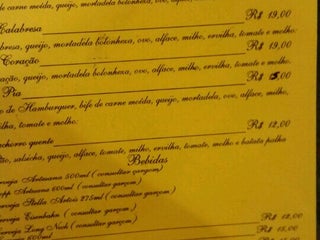 de carne moída, queijo, mortadela bolonhexa, ovo, alface, milho,
R$ 19,00
Calabresa
bresa, queijo, mortadela bolonhexa, ovo, alface, milho, ervilha, tomate e molho:
R$ 19,00
Coração
ração, queijo, mortadela bolonhexa, ovo, alface, milho, ervilha, tomate e molho:
R$ 5,00
Pia
o de Hamburguer, bife de carne moída, queijo, mortadela, ovo, alface, milho,
ilha, tomate e molho:
R$ 12,00
achorro quente
ão, salsicha, queijo, alface, tomate, milho, ervilha, tomate, molho e batata palha
Bebidas
erveja Artesana 500ml ( consultar garçom )
opp Artesana 600ml ( consultar garçom )
erveja Stella Artois 275ml ( consultar garçom )
erveja Eisenbahn ( consultar garçom )
erveja Long Neck ( consultar garçom )
600ml
R$ 12,00
R$ 15,00